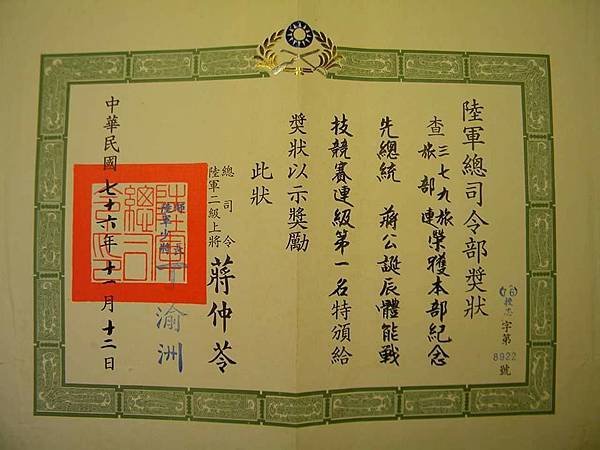 陸軍總司令部獎狀
(76)授志字第8922號
查三七九旅旅部連榮獲本部紀念
先總統 蔣公誕辰體能戰
技競賽連級第一名特頒給
獎狀以示獎勵
此狀
總司令
陸軍二級上將 蔣仲苓
陸軍少將 丁渝洲
中華民國七十六年十一月十二日